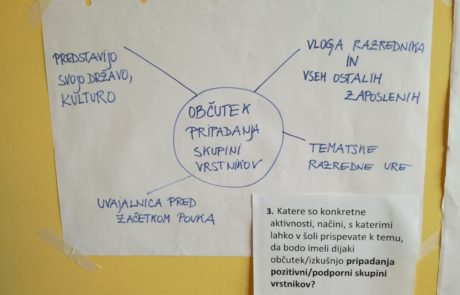 PREDSTAVIJO
SVOJO DRŽAVO,
KULTURO
VLOGA RAZREDNIKA
IN
VSEH OSTALIH
ZAPOSLENIH
OBČUTEK
PRIPADANJA
SKUPINI
VRSTNIKOV
TEMATSKE
RAZREDNE URE
UVAJALNICA PRED
ZAČETKOM POUKA
3. Katere so konkretne
aktivnosti, načini, s katerimi
lahko v šoli prispevate k temu,
da bodo imeli dijaki
občutek/izkušnjo pripadanja
pozitivni/podporni skupini
vrstnikov?